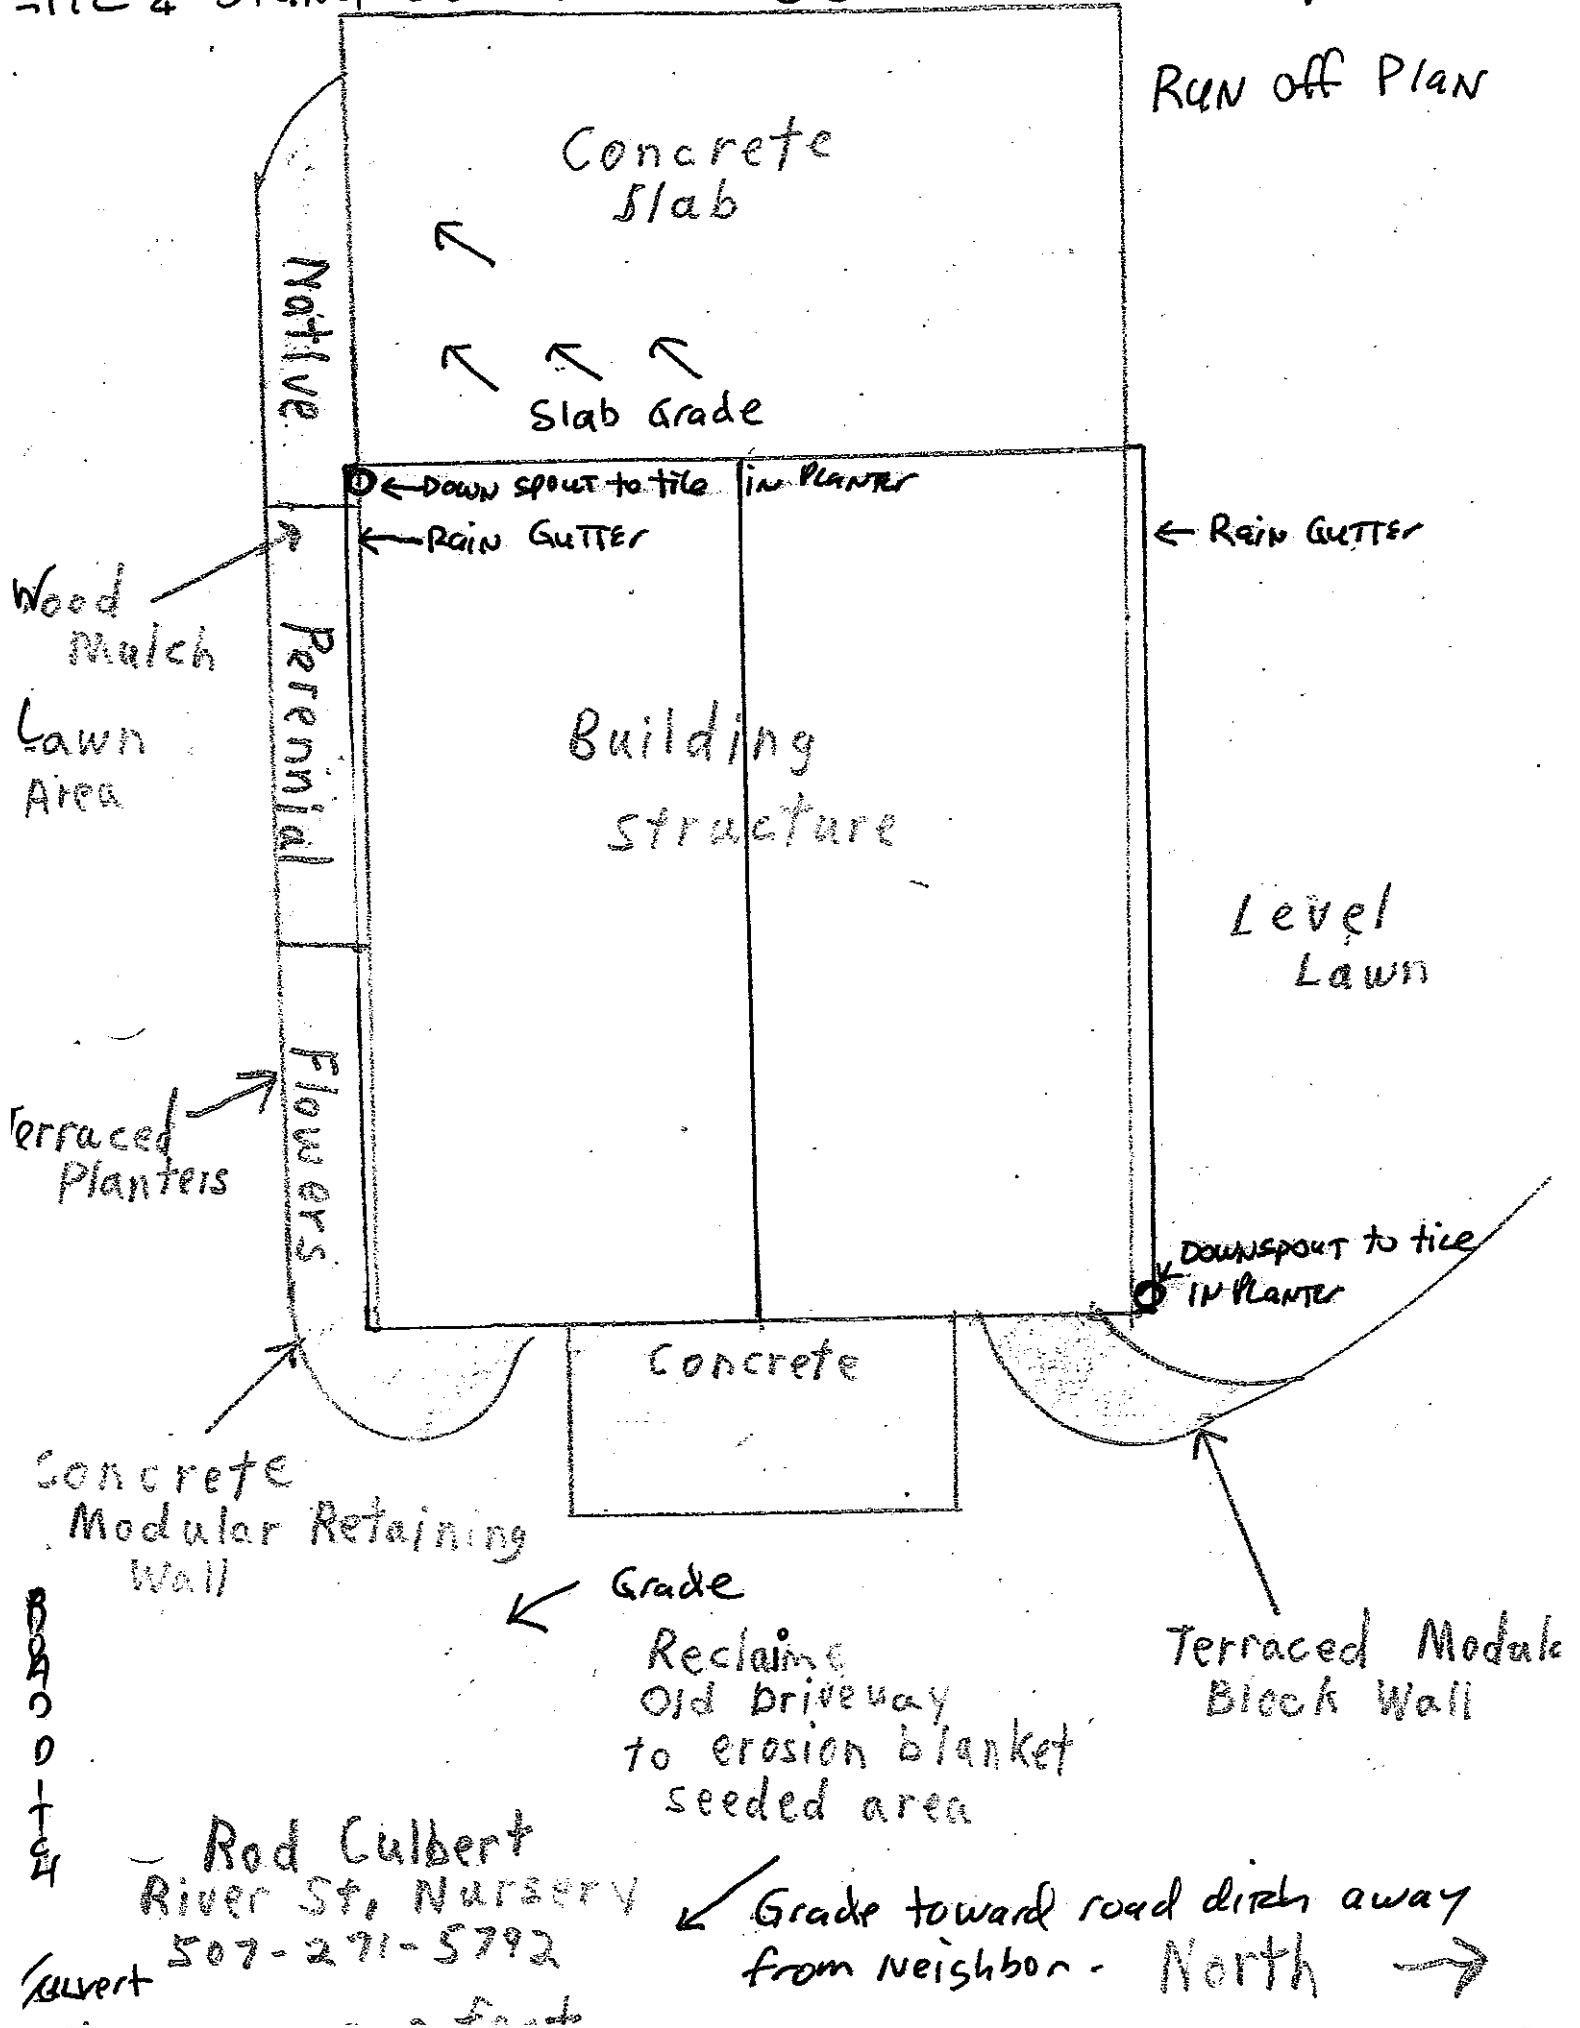 Run off Plan
Concrete
Slab
Slab Grade
Native
Perennial
Flowers
Down spout to tile in Planter
Rain Gutter
Rain Gutter
Wood
Mulch
Lawn
Area
Building
structure
Level
Lawn
Terraced
Planters
Downspout to tile
in Planter
Concrete
Concrete
Modular Retaining
Wall
Grade
Reclaime
Old Driveway
to erosion blanket
seeded area
Terraced Module
Block Wall
Road Ditch
Rod Culbert
River St. Nursery
507-271-5792
Grade toward road ditch away
from Neighbor.
North
feet